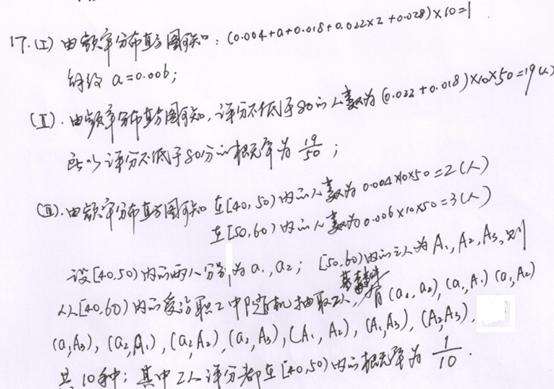 17.(I) 由频率分布直方图知:(0.004+a+0.018+0.022×2+0.028)×10=1
解得 a=0.006;
(II).由频率分布直方图知,评分不低于80的人数为(0.022+0.018)×10×50=19(人)
所以评分不低于80分的概率为 19/50;
(III).由频率分布直方图知 在[40,50)内的人数为 0.004×10×50=2(人)
在[50,60)内的人数为 0.006×10×50=3(人)
设[40.50)内的两人分别为a₁,a₂; [50.60)内的三人为A₁,A₂,A₃,则
从[40.60)内的受访职工中随机抽取2人, 有(a₁,a₂),(a₁,A₁)(a₁,A₂)
(a₁,A₃),(a₂,A₁),(a₂,A₂),(a₂,A₃),(A₁,A₂),(A₁,A₃),(A₂,A₃).
共10种; 其中2人评分都在[40,50)内的概率为 1/10.